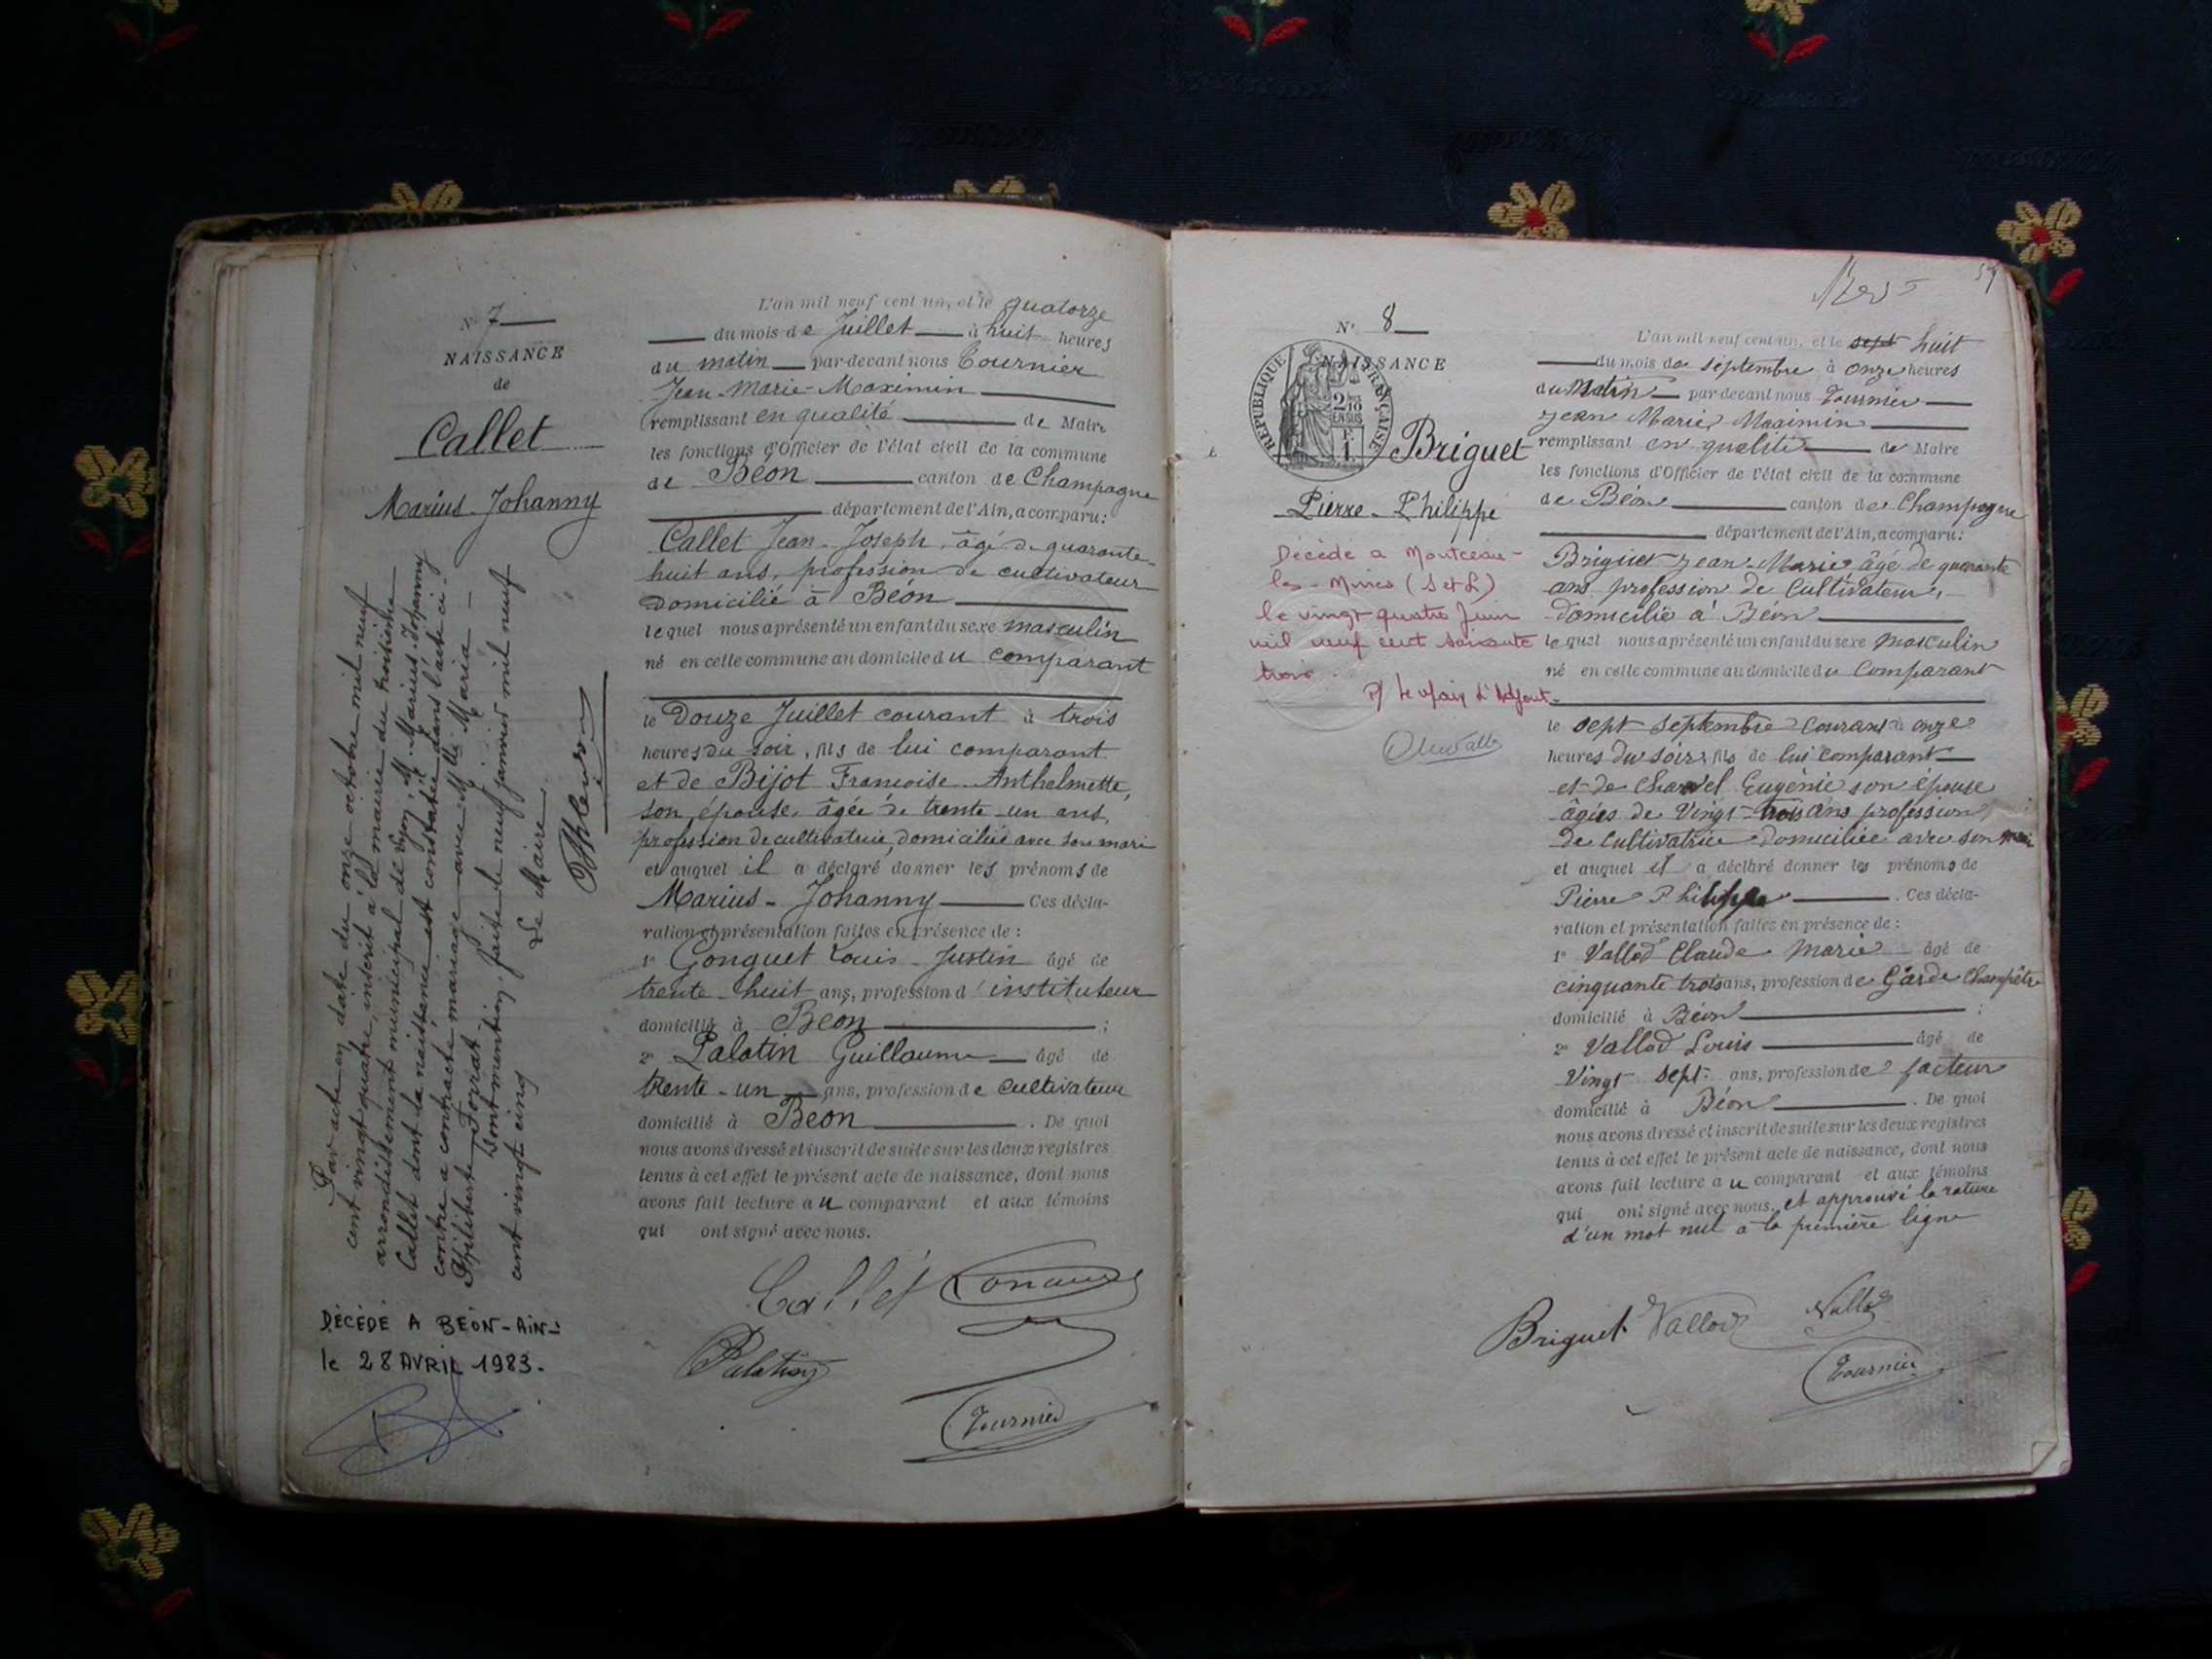 N° 7
NAISSANCE
de
Callet
Marius-Johanny
Par acte en date du onze octobre mil neuf
cent vingt quatre, inscrit à la mairie du troisième
arrondissement municipal de Lyon, M. Marius-Johanny
Callet dont la naissance est constatée dans l'acte ci-
contre a contracté mariage avec Mlle Maria
Philiberte Forrat.
Dont mention faite le neuf janvier mil neuf
cent vingt cinq
Le Maire
DÉCÉDÉ A BÉON-AIN-
le 28 AVRIL 1983.
L'an mil neuf cent un, et le quatorze
du mois de Juillet à huit heures
du matin par-devant nous Tournier
Jean-Marie-Maximin
remplissant en qualité de Maire
les fonctions d'Officier de l'état civil de la commune
de Béon canton de Champagne
département de l'Ain, a comparu:
Callet Jean-Joseph, âgé de quarante-
huit ans, profession de cultivateur
domicilié à Béon
lequel nous a présenté un enfant du sexe masculin
né en cette commune au domicile du comparant
le Douze Juillet courant à trois
heures du soir, fils de lui comparant
et de Bijot Françoise-Anthelmette,
son épouse, âgée de trente-un ans,
profession de cultivatrice, domiciliée avec son mari
et auquel il a déclaré donner les prénoms de
Marius-Johanny Ces décla-
ration et présentation faites en présence de:
1° Gonguet Louis-Justin âgé de
trente-huit ans, profession d'instituteur
domicilié à Béon ;
2° Palatin Guillaume âgé de
trente-un ans, profession de cultivateur
domicilié à Béon. De quoi
nous avons dressé et inscrit de suite sur les deux registres
tenus à cet effet le présent acte de naissance, dont nous
avons fait lecture au comparant et aux témoins
qui ont signé avec nous.
Callet
Palatin
Tournier
N° 8
NAISSANCE
REPUBLIQUE FRANÇAISE
2/10
EN SUS
Briguet
Pierre-Philippe
Décédé a Montceau-
les-Mines (S et L)
le vingt quatre Juin
mil neuf cent soixante
trois.
P/ le Maire L'Adjoint
L'an mil neuf cent un, et le sept huit
du mois de septembre à onze heures
du Matin par-devant nous Tournier
Jean Marie Maximin
remplissant en qualité de Maire
les fonctions d'Officier de l'état civil de la commune
de Béon canton de Champagne
département de l'Ain, a comparu:
Briguet Jean-Marie âgé de quarante
ans profession de Cultivateur,
domicilié à Béon
lequel nous a présenté un enfant du sexe masculin
né en cette commune au domicile du Comparant
le sept septembre courant à onze
heures du soir, fils de lui comparant
et de Charvel Eugènie son épouse
âgées de Vingt-trois ans profession
de Cultivatrice domiciliée avec son mari
et auquel il a déclaré donner les prénoms de
Pierre Philippe. Ces décla-
ration et présentation faites en présence de:
1° Vallod Claude Marie âgé de
cinquante trois ans, profession de Garde Champêtre
domicilié à Béon ;
2° Vallod Louis âgé de
Vingt sept ans, profession de facteur
domicilié à Béon. De quoi
nous avons dressé et inscrit de suite sur les deux registres
tenus à cet effet le présent acte de naissance, dont nous
avons fait lecture au comparant et aux témoins
qui ont signé avec nous. et approuvé la rature
d'un mot nul à la première ligne
Briguet Vallod Vallod
Tournier